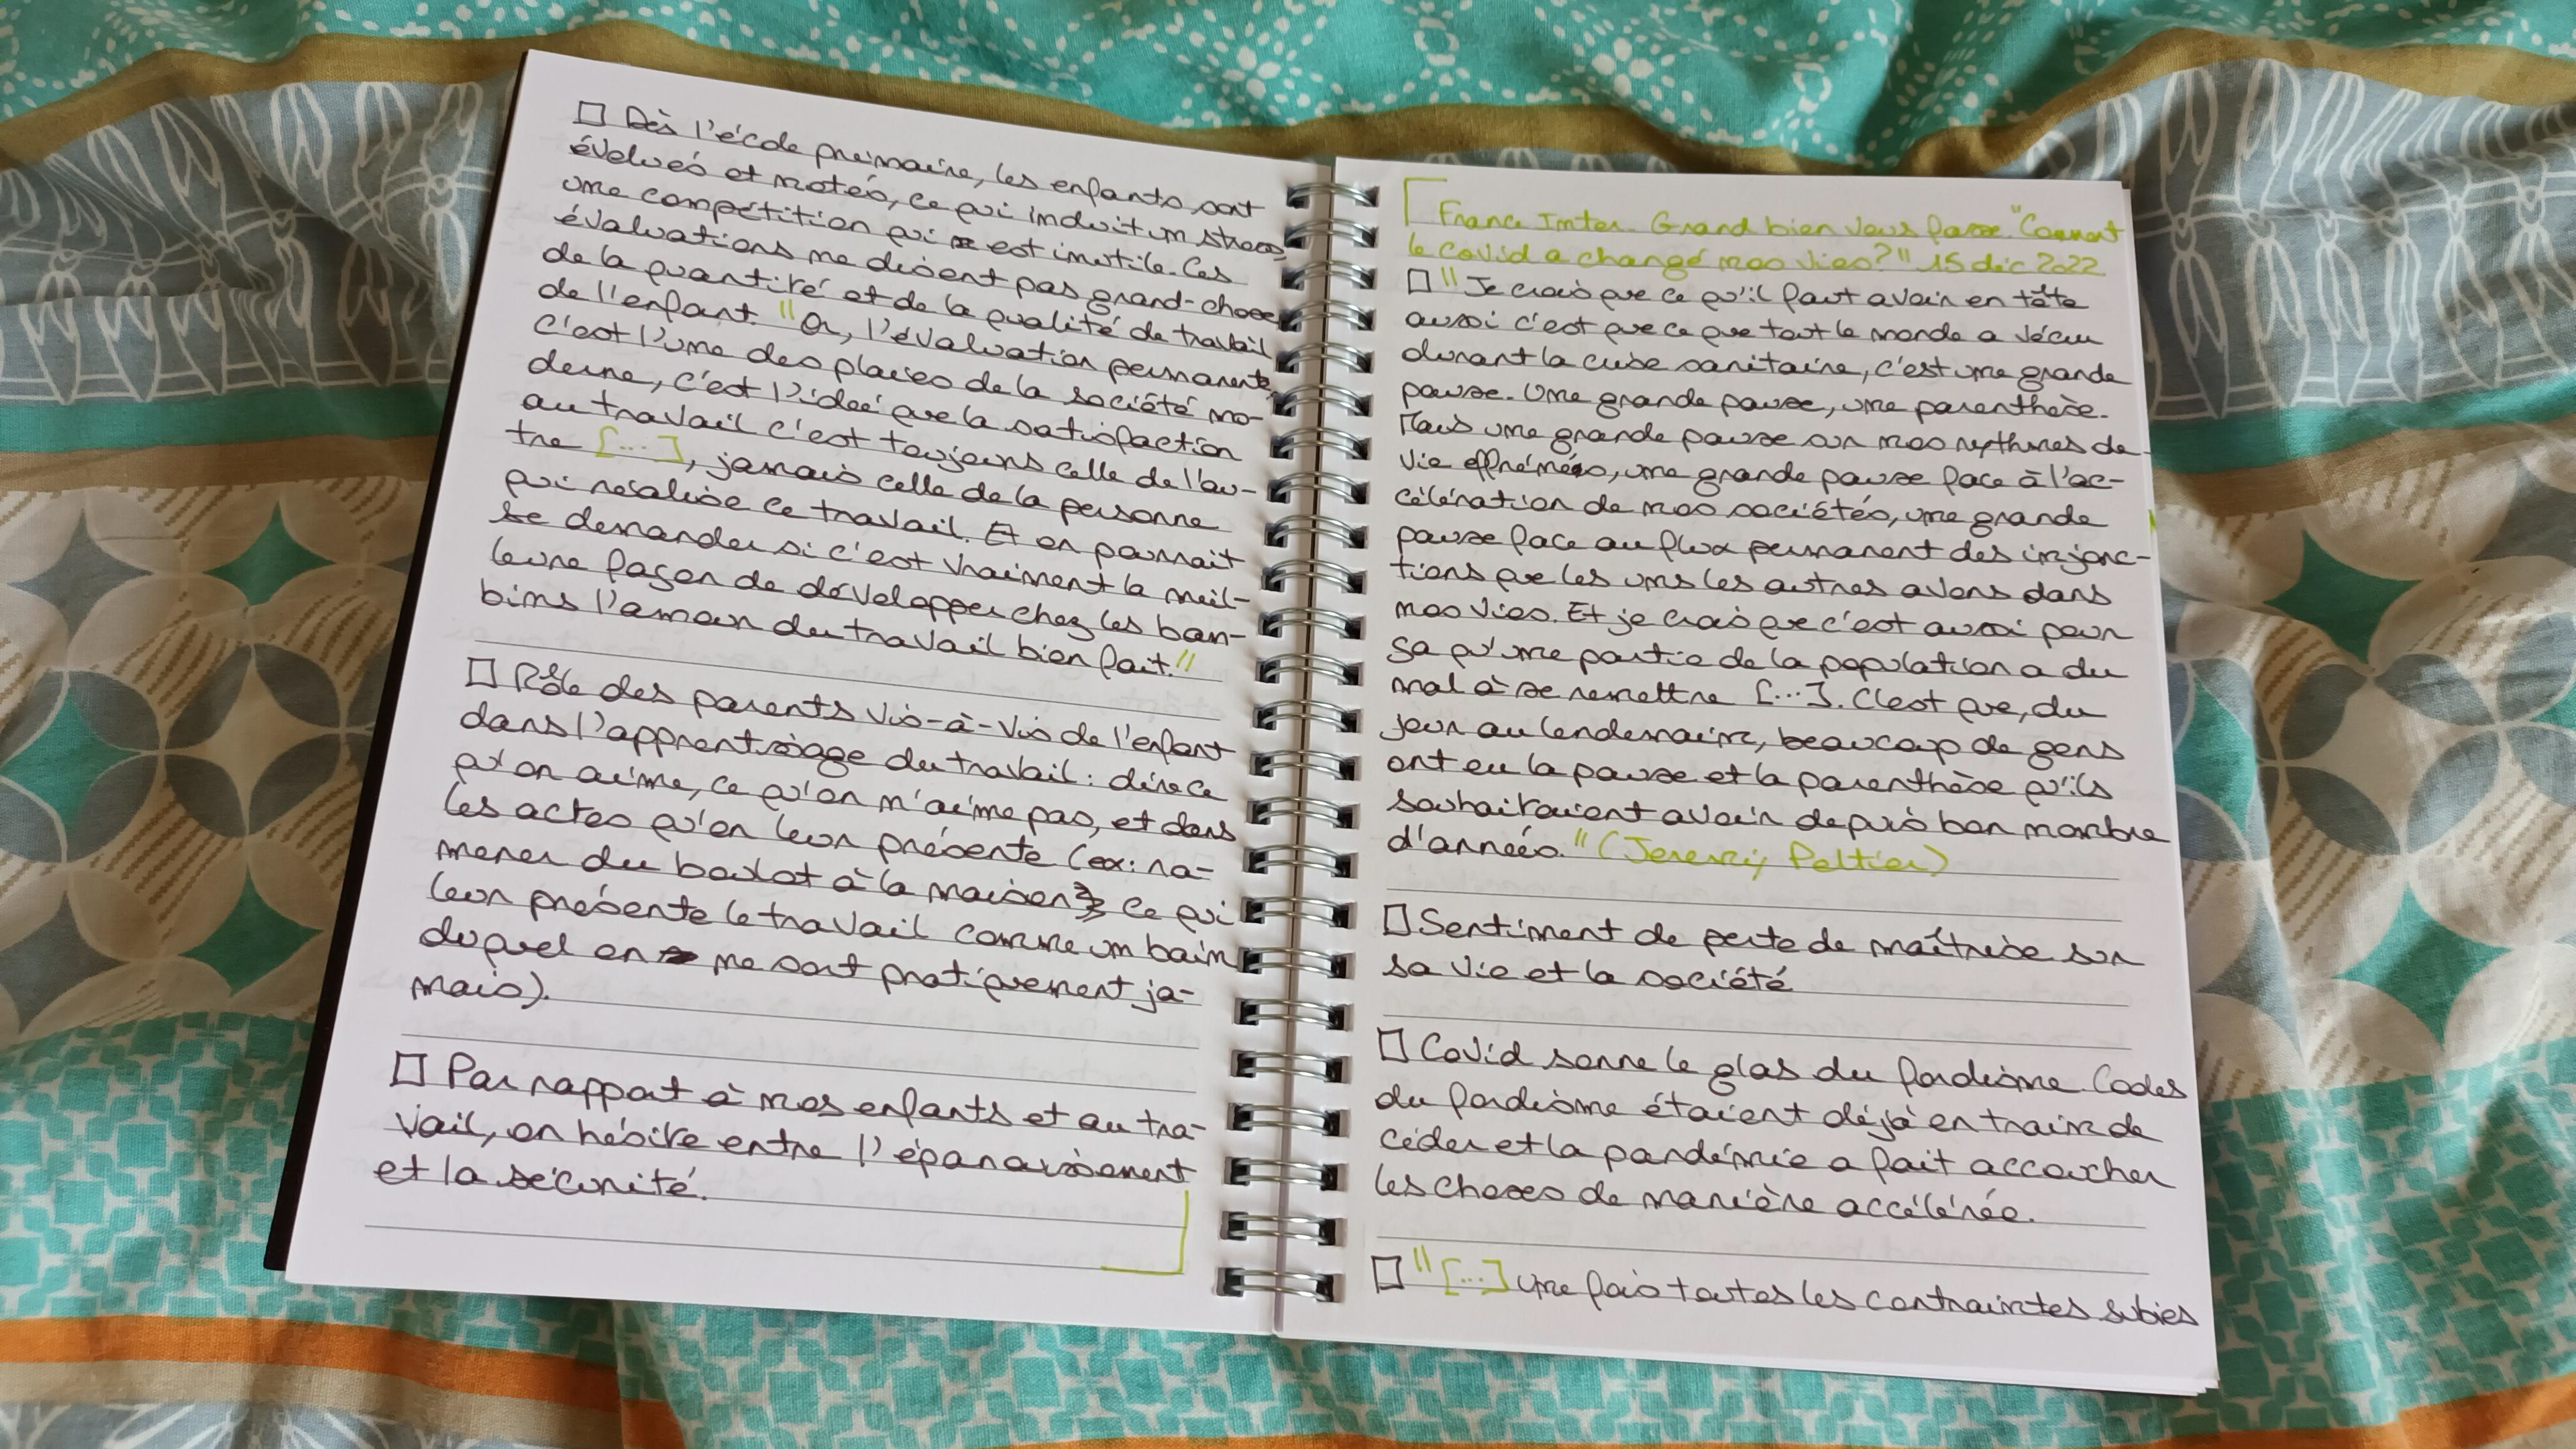 □ Dès l'école primaire, les enfants sont
évalués et notés, ce qui induit un stress,
une compétition qui est inutile. Ces
évaluations ne disent pas grand-chose
de la quantité et de la qualité de travail
de l'enfant. "Or, l'évaluation permanente,
c'est l'une des plaies de la société mo-
derne, c'est l'idée que la satisfaction
au travail c'est toujours celle de l'au-
tre [...], jamais celle de la personne
qui réalise ce travail. Et on pourrait
se demander si c'est vraiment la meil-
leure façon de développer chez les bam-
bins l'amour du travail bien fait."
□ Rôle des parents vis-à-vis de l'enfant
dans l'apprentissage du travail : dire ce
qu'on aime, ce qu'on n'aime pas, et dans
les actes qu'on leur présente (ex: ra-
mener du boulot à la maison ce qui
leur présente le travail comme un bain
duquel on ne sort pratiquement ja-
mais).
□ Par rapport à nos enfants et au tra-
vail, on hésite entre l'épanouissement
et la sécurité.
France Inter. Grand bien vous fasse. "Comment
le covid a changé nos vies?" 15 déc 2022
□ "Je crois que ce qu'il faut avoir en tête
aussi c'est que ce que tout le monde a vécu
durant la crise sanitaire, c'est une grande
pause. Une grande pause, une parenthèse.
Mais une grande pause sur nos rythmes de
vie effrénés, une grande pause face à l'ac-
célération de nos sociétés, une grande
pause face au flux permanent des injonc-
tions que les uns les autres avons dans
nos vies. Et je crois que c'est aussi pour
ça qu'une partie de la population a du
mal à se remettre [...]. C'est que, du
jour au lendemain, beaucoup de gens
ont eu la pause et la parenthèse qu'ils
souhaitaient avoir depuis bon nombre
d'années." (Jeremy Peltier)
□ Sentiment de perte de maîtrise sur
sa vie et la société
□ Covid sonne le glas du fordisme. Codes
du fordisme étaient déjà en train de
céder et la pandémie a fait accoucher
les choses de manière accélérée.
□ "[...] une fois toutes les contraintes subies